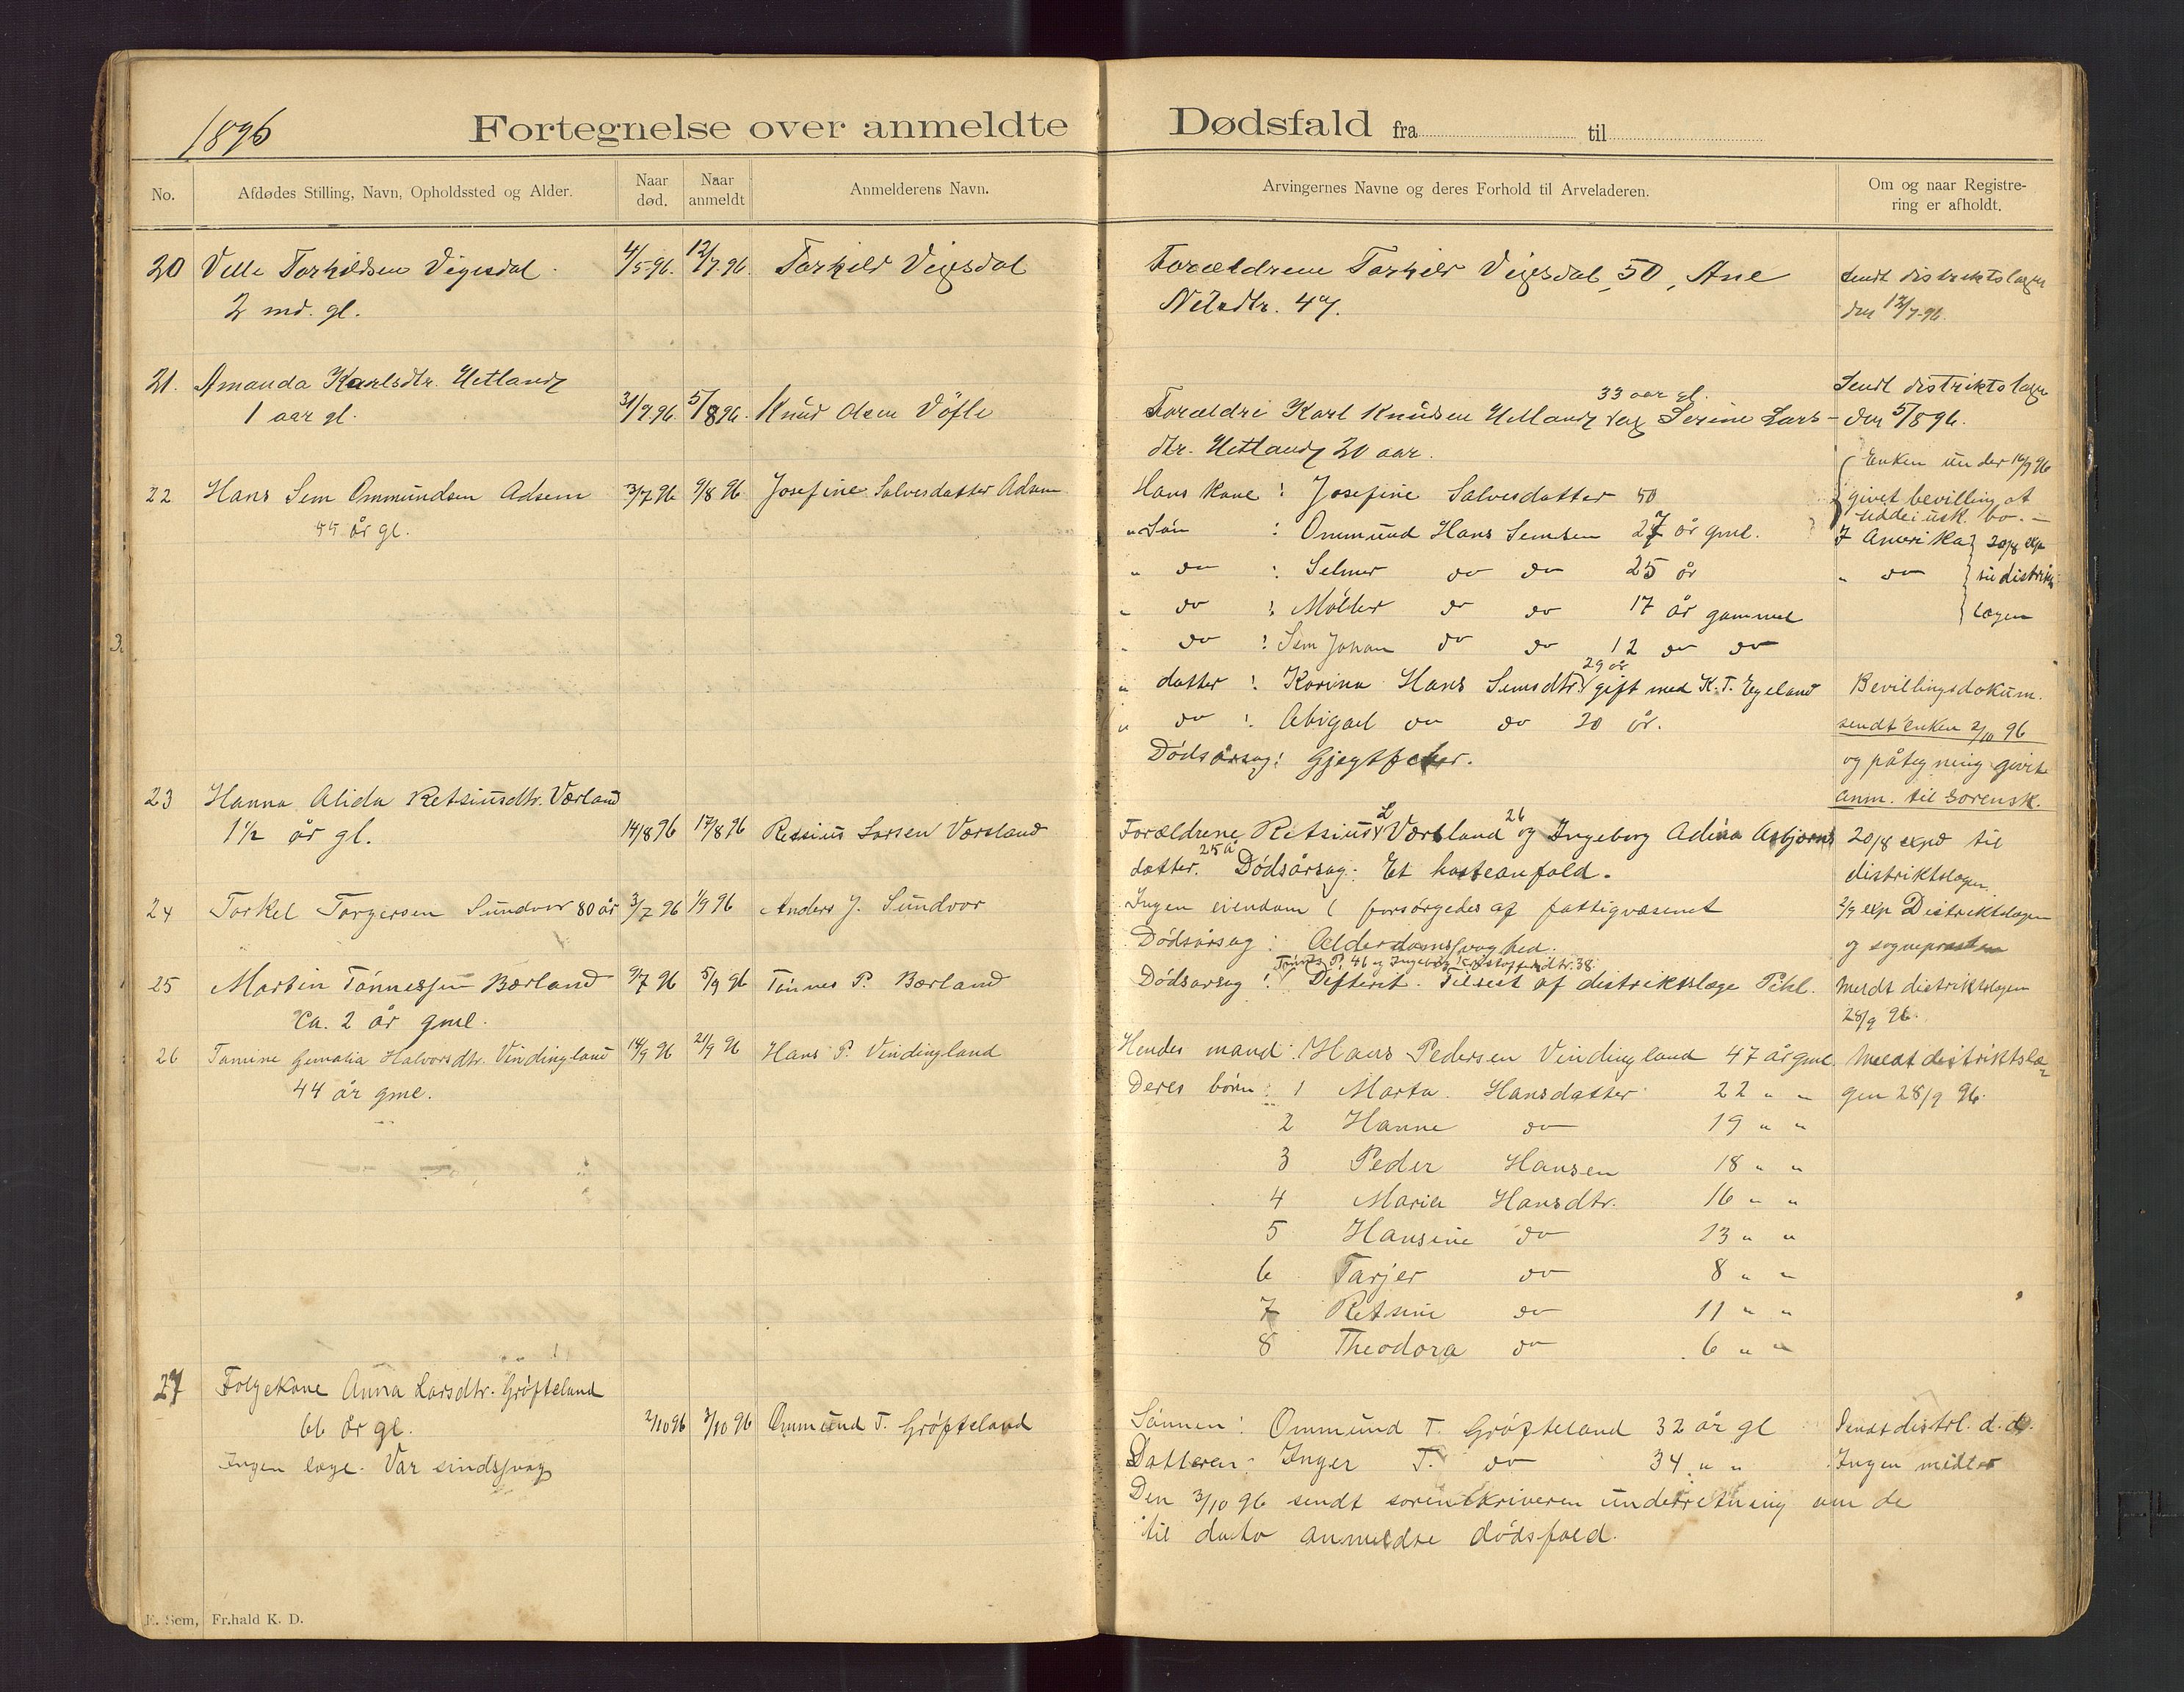 1896
Fortegnelse over anmeldte Dødsfald fra til
No.
Afdødes Stilling, Navn, Opholdssted og Alder.
Naar død.
Naar anmeldt
Anmelderens Navn.
Arvingernes Navne og deres Forhold til Arveladeren.
Om og naar Registrering er afholdt.
20 Velle Torkildsen Vigesdal. 4/5 96. 12/7 96. Torkild Vigesdal Forældrene Torkild Vigesdal, 50, Ane Sendt distriktslægen
2 md. gl. Nilsdtr. 47. den 12/7 96.
21. Amanda Karlsdtr. Uetland Sendt distriktslægen
33 aar gl.
1 aar gl. 31/7 96. 5/8 96. Knud Olsen Forældre Karl Knudsen Uetland og Serine Lars- den 5/8 96.
dtr. Uetland 30 aar.
Enken under 16/9 96
22 Hans Sem Ommundsen Adsem 3/7 96 9/8 96 Josefine Salvesdatter Adsem Hans kone : Josefine Salvesdatter 50 givet bevilling at
55 år gl. uskiftet bo. -
" Søn : Ommund Hans Semsen 27 år gml. I Amerika 20/8 exp
" do : Selmer do do 25 år " do til distrikts
" do : Møller do do 17 år gammel lægen
" do : Sem Johan do do 12 do do
29 år
" datter : Karina Hans Semsdtr. gift med K. T. Egeland Bevillingsdokum.
" do : Abigael do do 20 år. sendt enken 2/10 96
Dødsårsag: Gjegtfeber. og påtegning givet
23 Hanna Alida Retsiusdtr. Værland anm. til Sorensk.
L 26
1 1/2 år gl. 14/8 96 17/8 96 Retsius LarsenVærsland Forældrene Retsius Værsland og Ingeborg Adina Asbjørns 20/8 expd til
25 å
datter. Dødsårsag: Et hosteanfald. distriktslægen.
24 Torkel Torgersen Sundvor 80 år 3/7 96 1/9 96 Anders J. Sundvor Ingen eiendom ( forsørgedes af fattigvæsenet 2/9 exp Distriktslægen
Dødsårsag : Alderdomssvaghed. og sognepresten
Tønnes P. 46 og Ingeborg Kristoffersdtr. 38.
25 Martin Tønnessen Bærland 9/7 96 5/9 96 Tønnes P. Bærland Dødsarsag : Difterit. Tilseet af distriktslæge Pihl. Meldt distriktslægen
Ca. 2 år gml. 28/9 96.
26 Tomine Halvorsdtr. Vindingland 14/9 96 21/9 96 Hans P. Vindingland Hendes mand : Hans Pedersen Vindingland 47 år gml. Meldt distriktslæ-
44 år gml. Deres børn : 1 Marta Hansdatter 22 " " gen 28/9 96.
2 Hanne do 19 " "
3 Peder Hansen 18 " "
4 Maria Hansdtr. 16 " "
5 Hansine do 13 " "
6 Tarjer do 8 " "
7 Retsine do 11 " "
8 Theodora do 6 " "
27 Folgekone Anna Larsdtr. Grøfteland
66 år gl. 2/10 96 3/10 96 Ommund T. Grøfteland Sønnen : Ommund T. Grøfteland 32 år gl Sendt distrl. d. d.
Ingen læge. Var sindssvag Datteren: Inger T. do 34 " " Ingen midler
Den 3/10 96 sendt sorenskriveren underretning om de
til dato anmeldte dødsfald.
E. Sem, Fr.hald K. D.